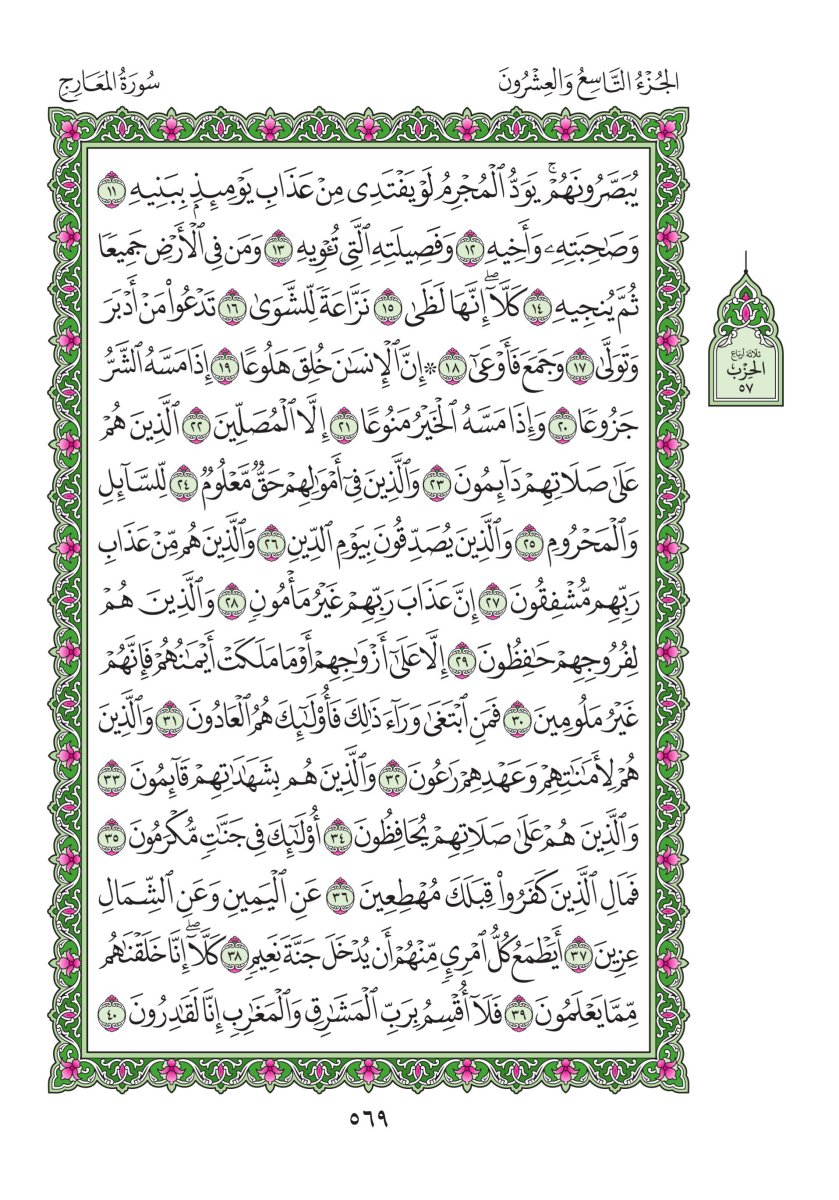 الجُزْءُ التَّاسِعُ وَالعِشْرُونَ
سُورَةُ المَعَارِجِ
يُبَصَّرُونَهُمْۚ يَوَدُّ ٱلْمُجْرِمُ لَوْ يَفْتَدِى مِنْ عَذَابِ يَوْمِئِذٍۭ بِبَنِيهِ ١١
وَصَٰحِبَتِهِۦ وَأَخِيهِ ١٢ وَفَصِيلَتِهِ ٱلَّتِى تُـْٔوِيهِ ١٣ وَمَن فِى ٱلْأَرْضِ جَمِيعًا
ثُمَّ يُنجِيهِ ١٤ كَلَّآۖ إِنَّهَا لَظَىٰ ١٥ نَزَّاعَةً لِّلشَّوَىٰ ١٦ تَدْعُوا۟ مَنْ أَدْبَرَ
وَتَوَلَّىٰ ١٧ وَجَمَعَ فَأَوْعَىٰٓ ١٨ ۞ إِنَّ ٱلْإِنسَٰنَ خُلِقَ هَلُوعًا ١٩ إِذَا مَسَّهُ ٱلشَّرُّ
جَزُوعًا ٢٠ وَإِذَا مَسَّهُ ٱلْخَيْرُ مَنُوعًا ٢١ إِلَّا ٱلْمُصَلِّينَ ٢٢ ٱلَّذِينَ هُمْ
عَلَىٰ صَلَاتِهِمْ دَآئِمُونَ ٢٣ وَٱلَّذِينَ فِىٓ أَمْوَٰلِهِمْ حَقٌّ مَّعْلُومٌ ٢٤ لِّلسَّآئِلِ
وَٱلْمَحْرُومِ ٢٥ وَٱلَّذِينَ يُصَدِّقُونَ بِيَوْمِ ٱلدِّينِ ٢٦ وَٱلَّذِينَ هُم مِّنْ عَذَابِ
رَبِّهِم مُّشْفِقُونَ ٢٧ إِنَّ عَذَابَ رَبِّهِمْ غَيْرُ مَأْمُونٍ ٢٨ وَٱلَّذِينَ هُمْ
لِفُرُوجِهِمْ حَٰفِظُونَ ٢٩ إِلَّا عَلَىٰٓ أَزْوَٰجِهِمْ أَوْ مَا مَلَكَتْ أَيْمَٰنُهُمْ فَإِنَّهُمْ
غَيْرُ مَلُومِينَ ٣٠ فَمَنِ ٱبْتَغَىٰ وَرَآءَ ذَٰلِكَ فَأُو۟لَٰٓئِكَ هُمُ ٱلْعَادُونَ ٣١ وَٱلَّذِينَ
هُمْ لِأَمَٰنَٰتِهِمْ وَعَهْدِهِمْ رَٰعُونَ ٣٢ وَٱلَّذِينَ هُم بِشَهَٰدَٰتِهِمْ قَآئِمُونَ ٣٣
وَٱلَّذِينَ هُمْ عَلَىٰ صَلَاتِهِمْ يُحَافِظُونَ ٣٤ أُو۟لَٰٓئِكَ فِى جَنَّٰتٍ مُّكْرَمُونَ ٣٥
فَمَالِ ٱلَّذِينَ كَفَرُوا۟ قِبَلَكَ مُهْطِعِينَ ٣٦ عَنِ ٱلْيَمِينِ وَعَنِ ٱلشِّمَالِ
عِزِينَ ٣٧ أَيَطْمَعُ كُلُّ ٱمْرِئٍ مِّنْهُمْ أَن يُدْخَلَ جَنَّةَ نَعِيمٍ ٣٨ كَلَّآۖ إِنَّا خَلَقْنَٰهُم
مِّمَّا يَعْلَمُونَ ٣٩ فَلَآ أُقْسِمُ بِرَبِّ ٱلْمَشَٰرِقِ وَٱلْمَغَٰرِبِ إِنَّا لَقَٰدِرُونَ ٤٠
ثلاثة أرباع
الحِزْبُ
٥٧
٥٦٩